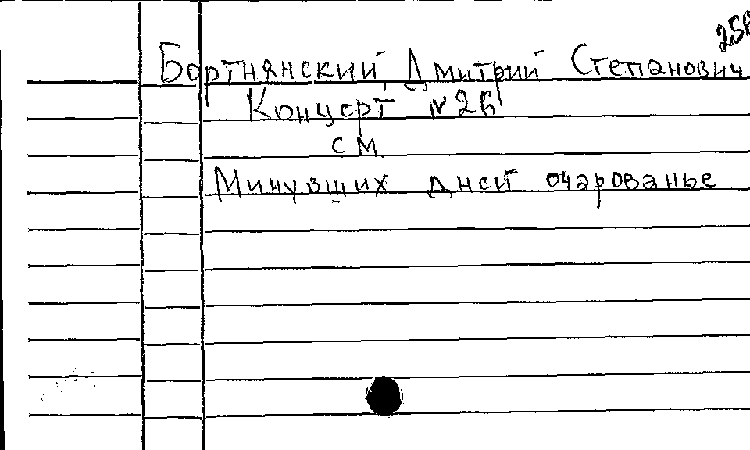 Бортнянский, Дмитрий Степанович
Концерт №26
см
Минувших дней очарованье